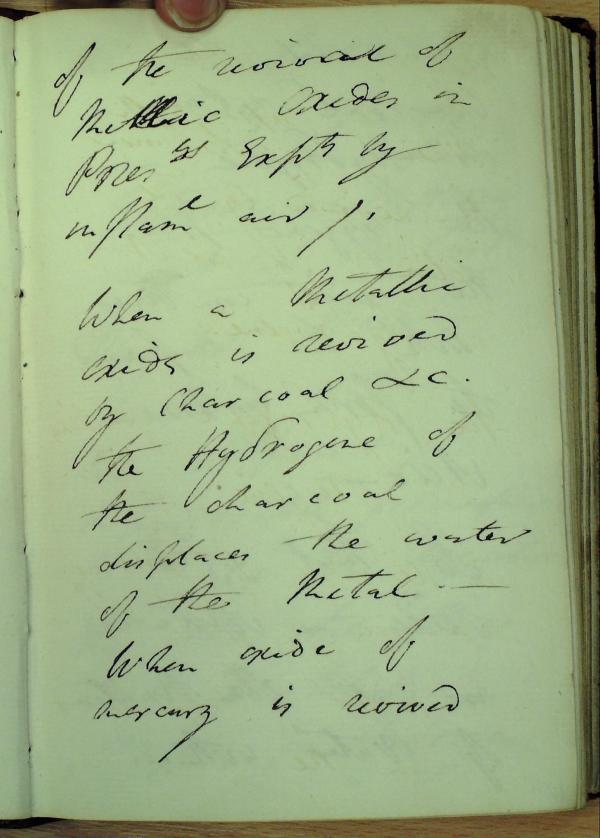 of the revival of
Metallic Oxides in
Expts by
inflaml air /.
When a Metallic
oxide is revived
by Charcoal &c.
the Hydrogene of
the charcoal
displaces the water
of the Metal —
When oxide of
mercury is revived